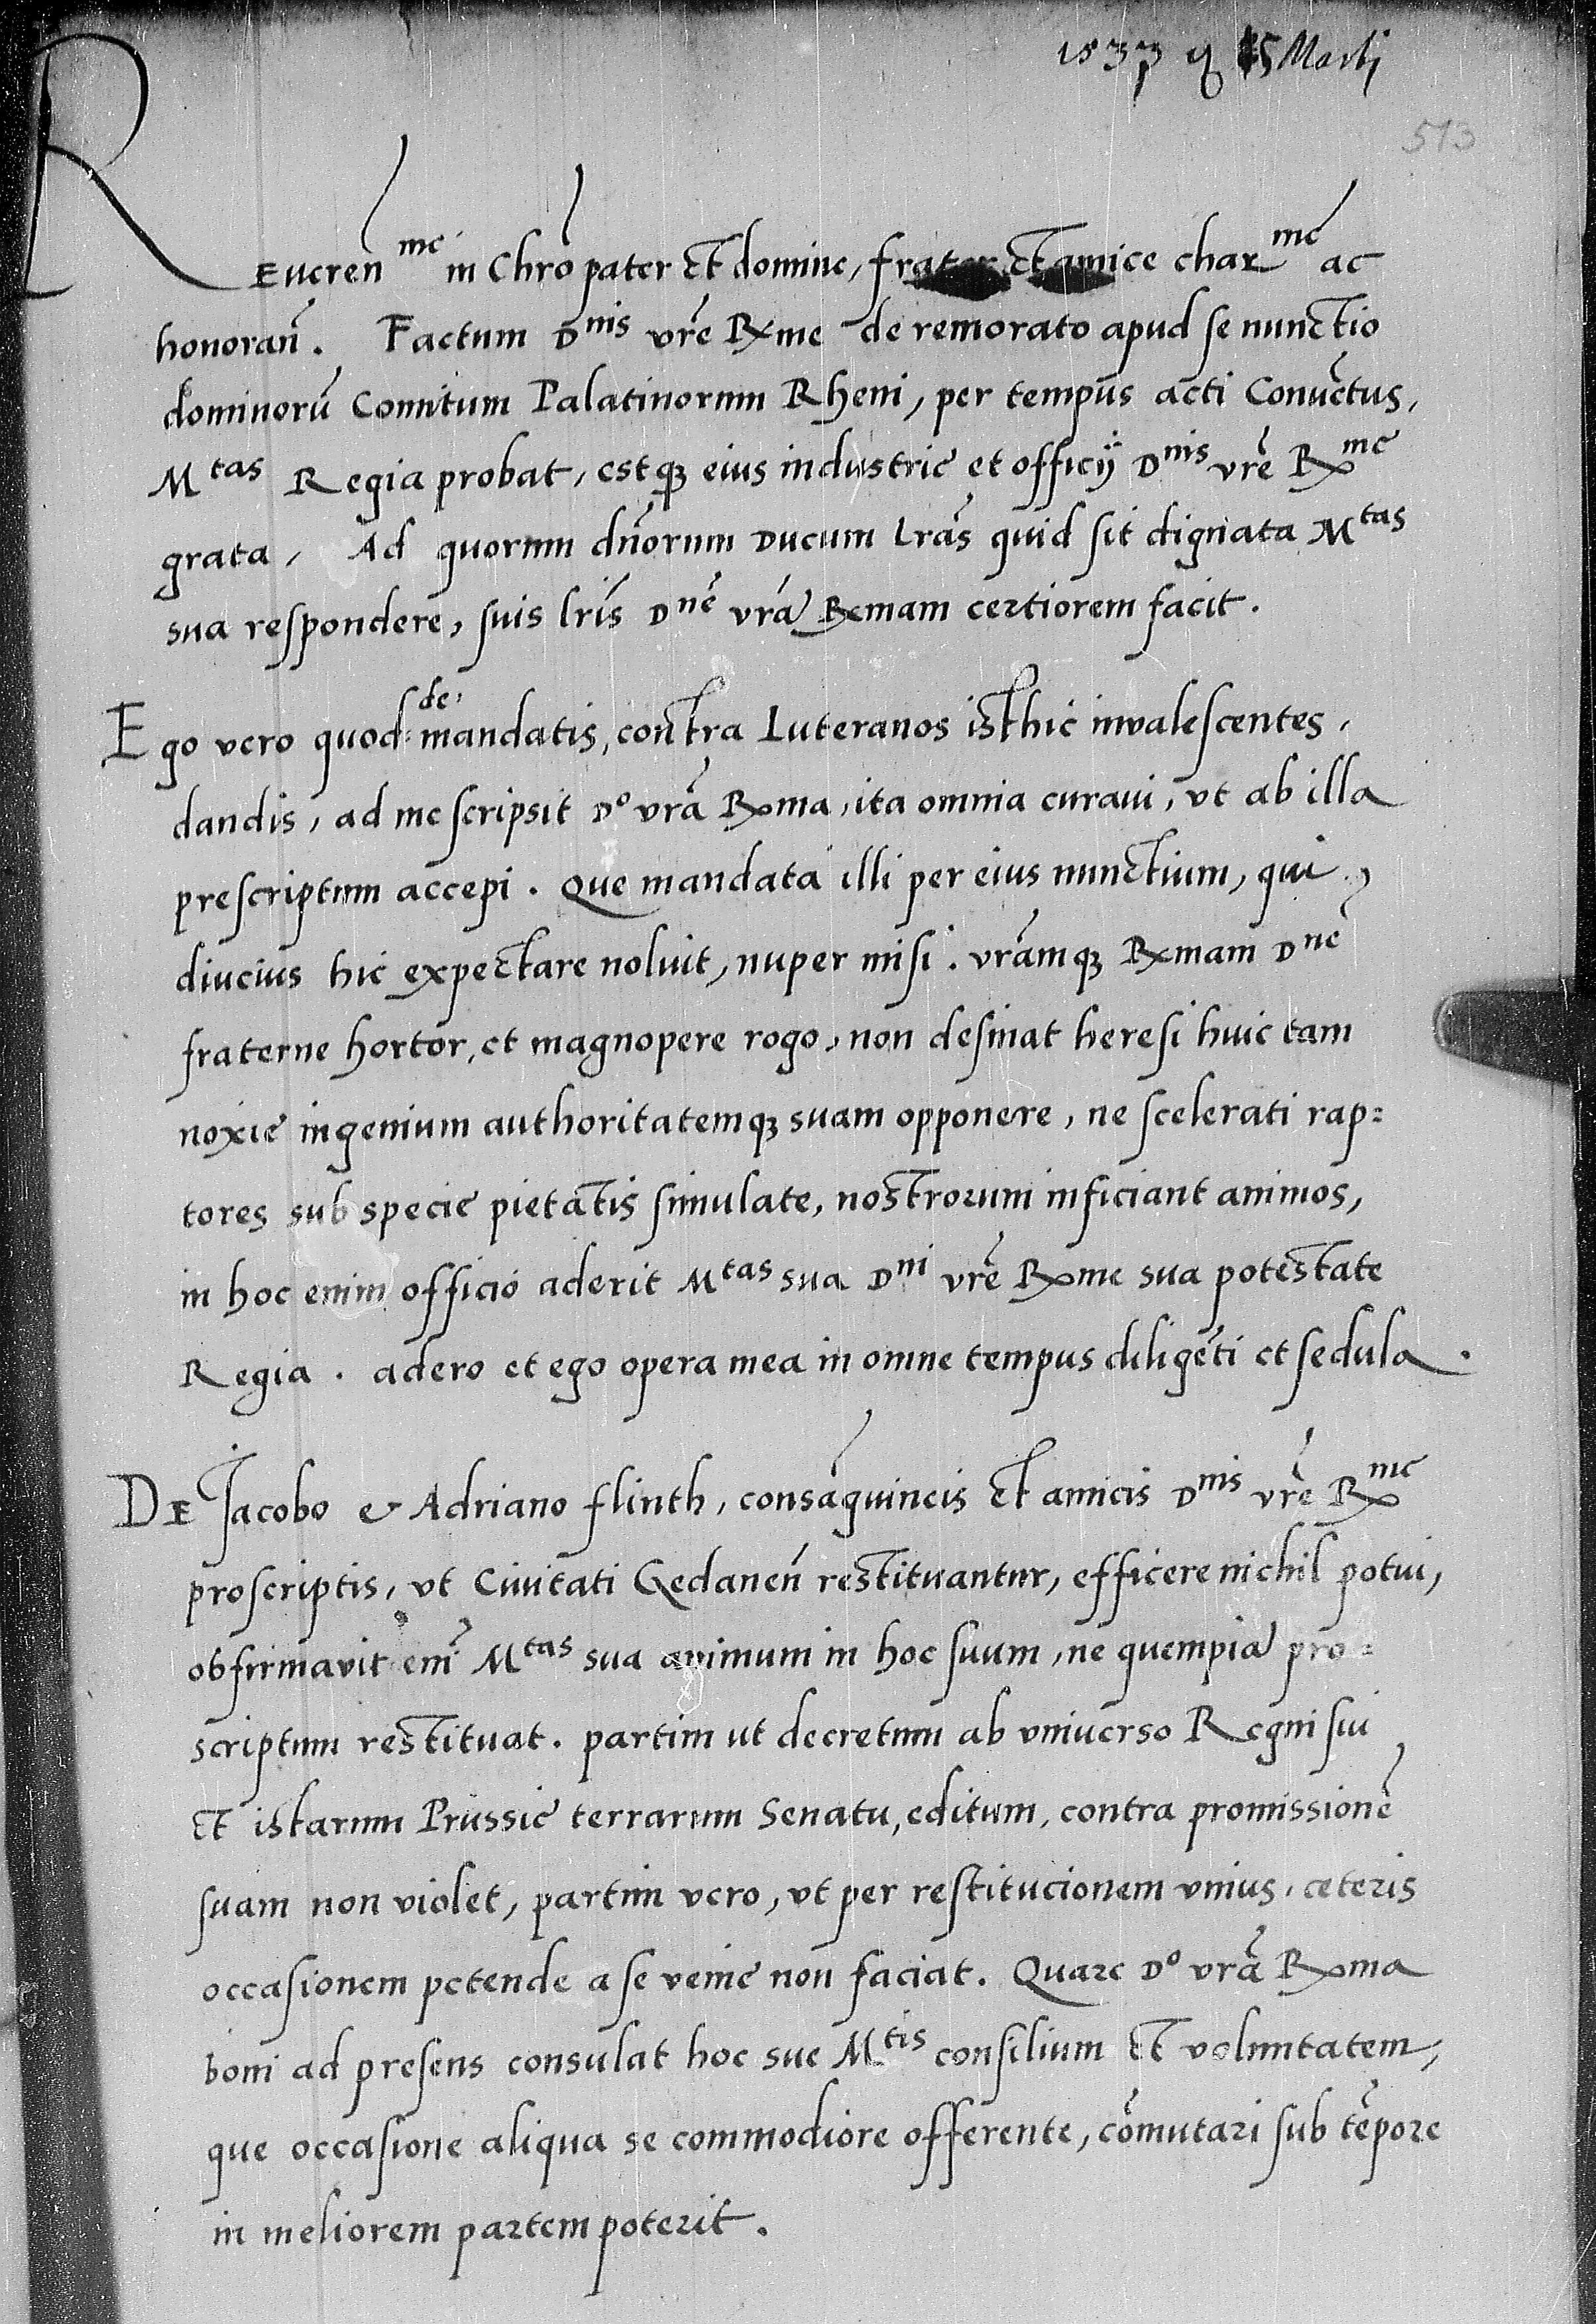 1533 15 Martij
513
REueren̄ mē in Chrō pater Et domine, frater Et amice char mē ac
honoran̄. Factum Dnis vrē Rxme de remorato apud se nunctio
dominorū Comitum Palatinorum Rheni, per tempus acti Conuctus,
Mtas Regia probat, estqꝫ eius industrie et officij Dnis vrē Rxme
grata, Ad quorum dn̄orum Ducum lrās quid sit dignata Mtas
sua respondere, suis lrīs Dnē vrā Rxmam certiorem facit.
Ego vero quod de mandatis, contra Luteranos isthic invalescentes,
dandis, ad me scripsit Do vrā Rxma, ita omnia curaui, vt ab illa
prescriptum accepi. Que mandata illi per eius nunctium, qui
diucius hic expectare noluit, nuper misi. vrāmqꝫ Rxmam Dnē
fraterne hortor, et magnopere rogo, non desinat heresi huic tam
noxie ingenium authoritatemqꝫ suam opponere, ne scelerati rap=
tores sub specie pietatis simulate, nostrorum inficiant animos,
in hoc enim officio aderit Mtas sua Dni vrē Rxme sua potestate
Regia. adero et ego opera mea in omne tempus diligēti et sedula.
DE Jacobo & Adriano flinth, consāguineis Et amicis Dnis vrē Rxme
proscriptis, vt Ciuitati Gedanen̄ restituantur, efficere nichil potui,
obfirmavit enī Mtas sua animum in hoc suum, ne quempiā pro=
scriptum restituat. partim ut decretum ab vniuerso Regni sui
Et istarum Prussie terrarum Senatu, editum, contra promissionē
suam non violet, partim vero, vt per restitucionem vnius, ceteris
occasionem petende a se venie non faciat. Quare Do vrā Rxma
boni ad presens consulat hoc sue Mtis consilium Et voluntatem,
que occasione aliqua se commodiore offerente, cōmutari sub tēpore
in meliorem partem poterit.